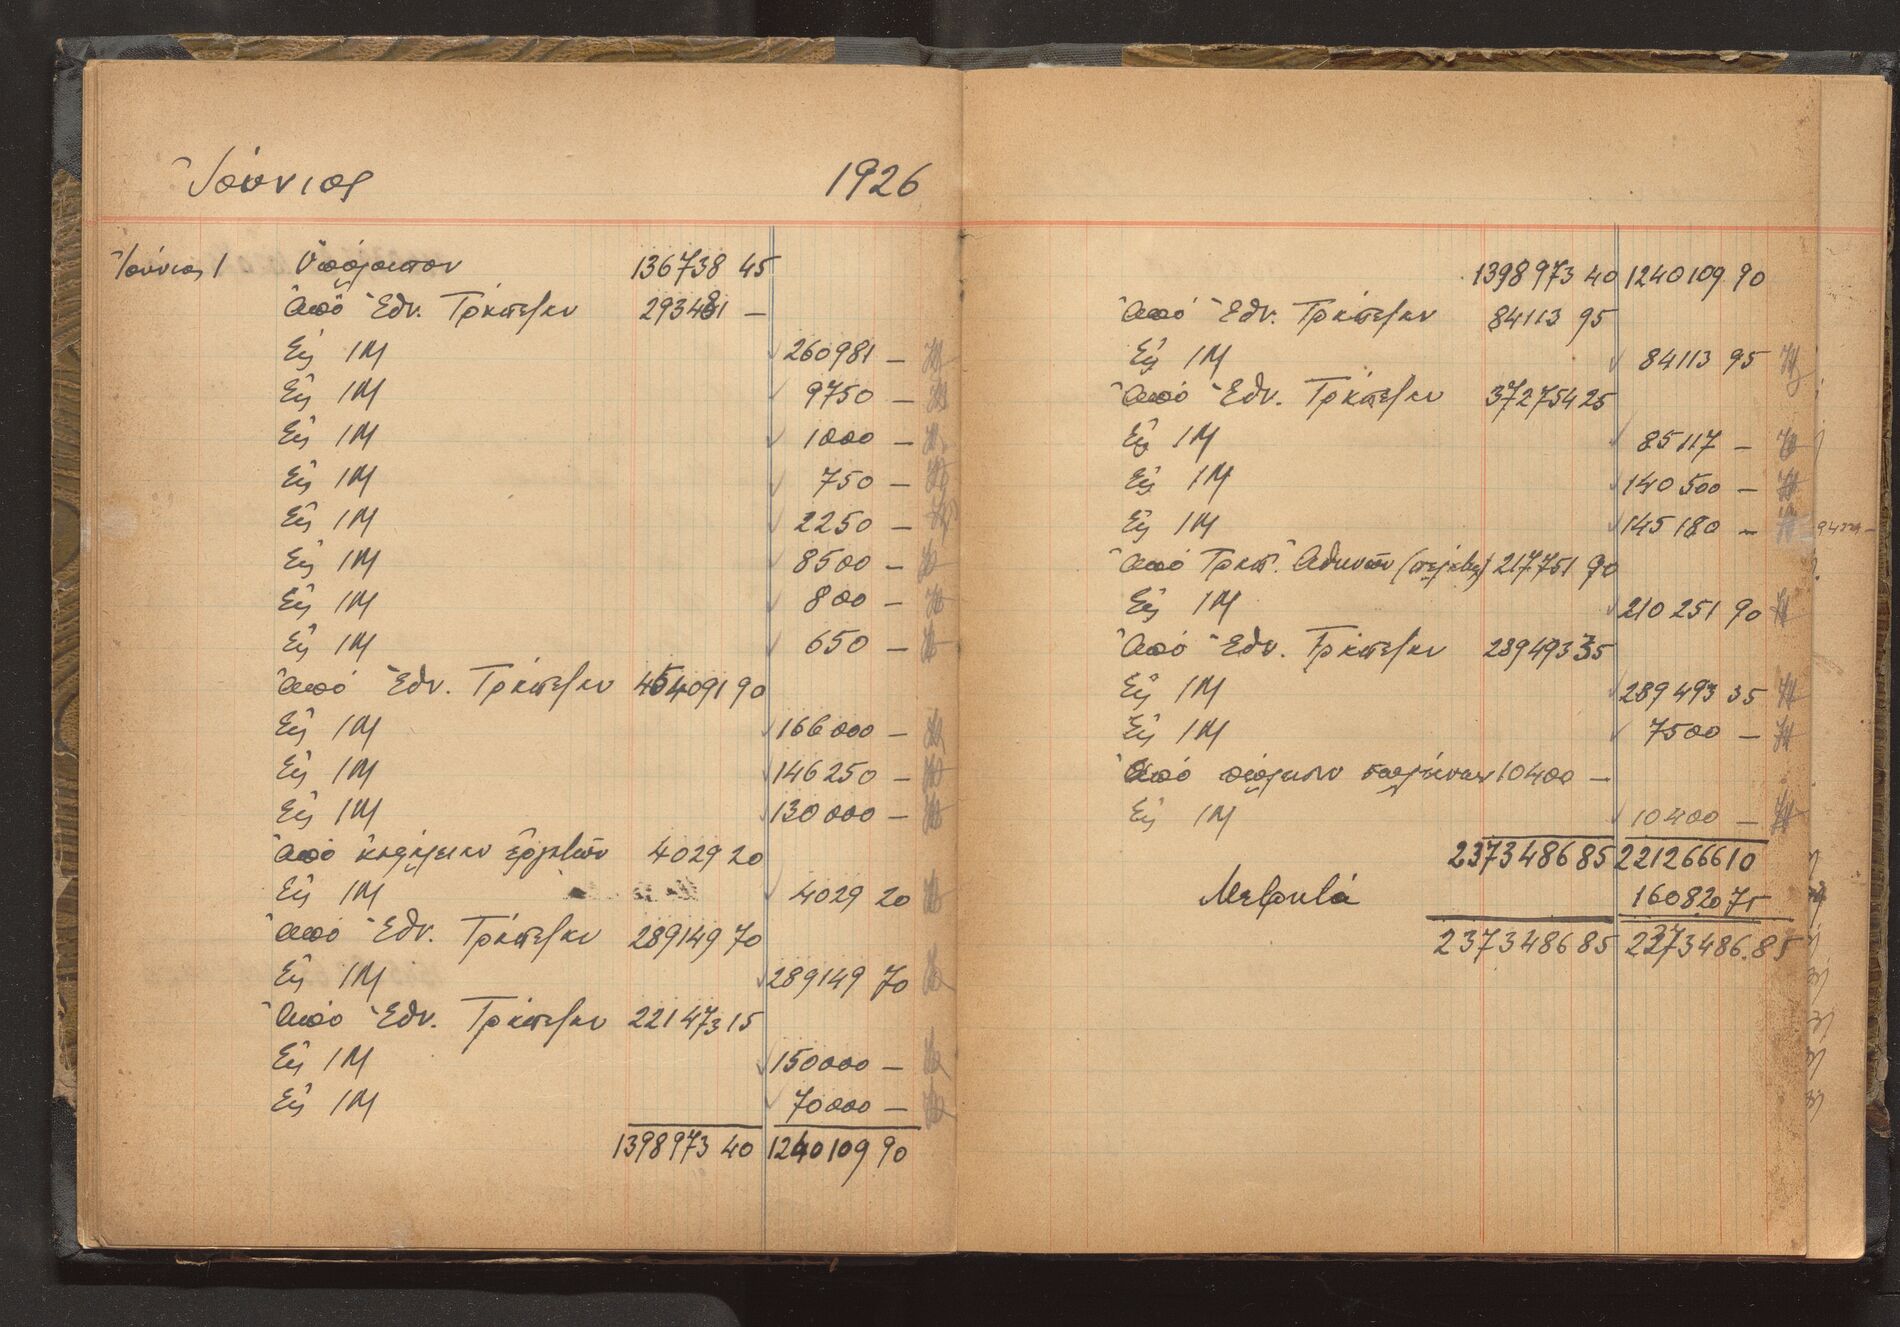 Ἰούνιος 1926
Ἰούνιος 1 Ὑπόλοιπον 136738 45
Ἀπό Ἐθν. Τράπεζαν 293481 —
Εἰς 1Μ 260981 —
Εἰς 1Μ 9750 —
Εἰς 1Μ 1000 —
Εἰς 1Μ 750 —
Εἰς 1Μ 2250 —
Εἰς 1Μ 8500 —
Εἰς 1Μ 800 —
Εἰς 1Μ 650 —
Ἀπό Ἐθν. Τράπεζαν 454091 90
Εἰς 1Μ 166000 —
Εἰς 1Μ 146250 —
Εἰς 1Μ 130000 —
Ἀπό 4029 20
Εἰς 1Μ 4029 20
Ἀπό Ἐθν. Τράπεζαν 289149 70
Εἰς 1Μ 289149 70
Ἀπό Ἐθν. Τράπεζαν 221473 15
Εἰς 1Μ 150000 —
Εἰς 1Μ 70000 —
1398973 40 1240109 90
1398973 40 1240109 90
Ἀπό Ἐθν. Τράπεζαν 84113 95
Εἰς 1Μ 84113 95
Ἀπό Ἐθν. Τράπεζαν 372754 25
Εἰς 1Μ 85117 —
Εἰς 1Μ 140500 —
Εἰς 1Μ 145180 —
Ἀπό Τραπ. Ἀθηνῶν 217751 90
Εἰς 1Μ 210251 90
Ἀπό Ἐθν. Τράπεζαν 289493 35
Εἰς 1Μ 289493 35
Εἰς 1Μ 7500 —
Ἀπό 10400 —
Εἰς 1Μ 10400 —
2373486 85 2212666 10
Μεφυλά 160820 75
2373486 85 2373486.85